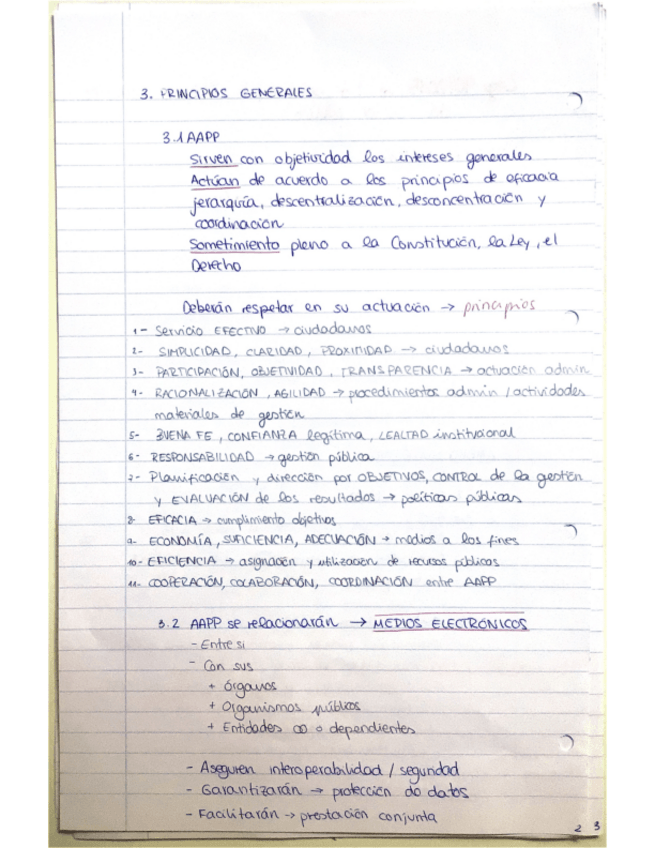 3. PRINCIPIOS GENERALES
3.1 AAPP
Sirven con objetividad los intereses generales
Actúan de acuerdo a los principios de eficacia
jerarquía, descentralización, desconcentración y
coordinación
Sometimiento pleno a la Constitución, la Ley, el
Derecho
Deberán respetar en su actuación → principios
1- Servicio EFECTIVO → ciudadanos
2- SIMPLICIDAD, CLARIDAD, PROXIMIDAD → ciudadanos
3- PARTICIPACIÓN, OBJETIVIDAD, TRANSPARENCIA → actuación admin
4- RACIONALIZACIÓN, AGILIDAD → procedimientos admin / actividades
materiales de gestión
5- BUENA FE, CONFIANZA legítima, LEALTAD institucional
6- RESPONSABILIDAD → gestión pública
7- Planificación y dirección por OBJETIVOS, CONTROL de la gestión
y EVALUACIÓN de los resultados → políticas públicas
8- EFICACIA → cumplimiento objetivos
9- ECONOMÍA, SUFICIENCIA, ADECUACIÓN → medios a los fines
10- EFICIENCIA → asignación y utilización de recursos públicos
11- COOPERACIÓN, COLABORACIÓN, COORDINACIÓN entre AAPP
3.2 AAPP se relacionarán → MEDIOS ELECTRÓNICOS
- Entre si
- Con sus
+ órganos
+ Organismos públicos
+ Entidades ∞ o dependientes
- Aseguren interoperabilidad / seguridad
- Garantizarán → protección de datos
- Facilitarán → prestación conjunta
2 3